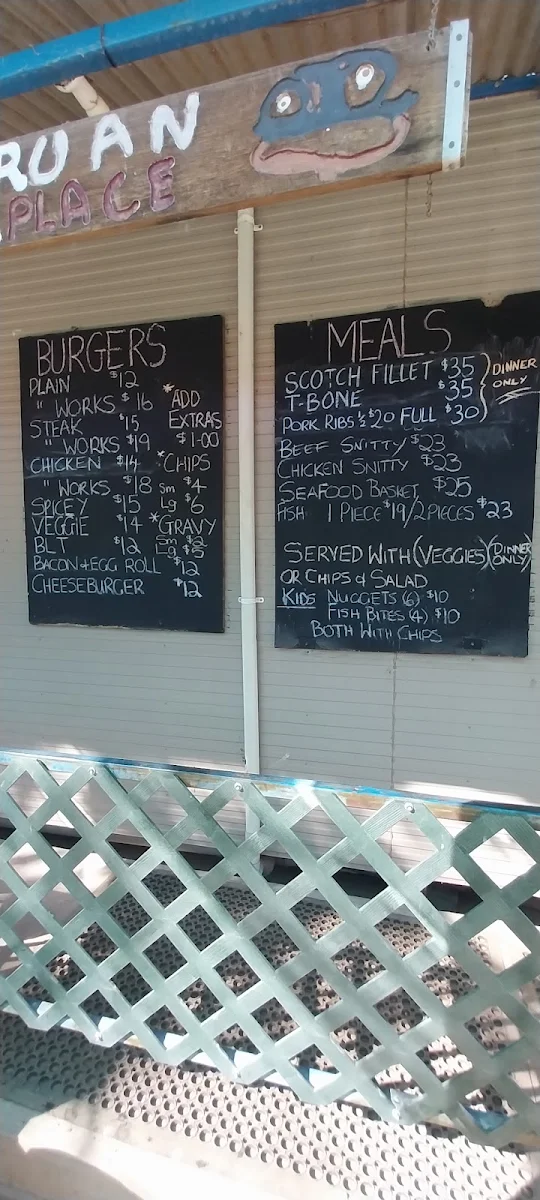 RUAN
PLACE
BURGERS
PLAIN $12
" WORKS $16
STEAK $15
" WORKS $19
CHICKEN $14
" WORKS $18
SPICEY $15
VEGGIE $14
BLT $12
BACON & EGG ROLL $12
CHEESEBURGER $12
*ADD
EXTRAS
$1-00
*CHIPS
Sm $4
Lg $6
*GRAVY
Sm $2
Lg $5
MEALS
SCOTCH FILLET $35
T-BONE $35
PORK RIBS ½ $20 FULL $30
DINNER
ONLY
BEEF SNITTY $23
CHICKEN SNITTY $23
SEAFOOD BASKET $25
FISH 1 PIECE $19/2 PIECES $23
SERVED WITH (VEGGIES) (DINNER ONLY)
OR CHIPS & SALAD
KIDS NUGGETS (6) $10
FISH BITES (4) $10
BOTH WITH CHIPS